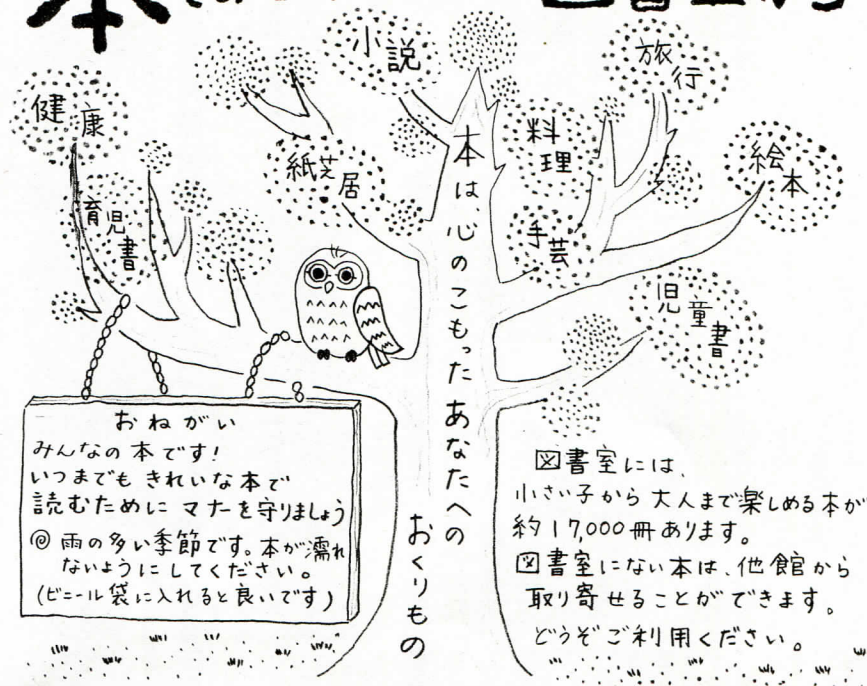 本
図書室
小説
旅行
健康
料理
絵本
紙芝居
育児書
手芸
児童書
本は、心のこもったあなたへの
おくりもの
おねがい
みんなの本です!
いつまでも きれいな本で
読むために マナーを守りましょう
◎ 雨の多い季節です。本が濡れ
ないようにしてください。
(ビニール袋に入れると良いです)
図書室には、
小さい子から 大人まで楽しめる本が
約17,000冊あります。
図書室にない本は、他館から
取り寄せることができます。
どうぞご利用ください。